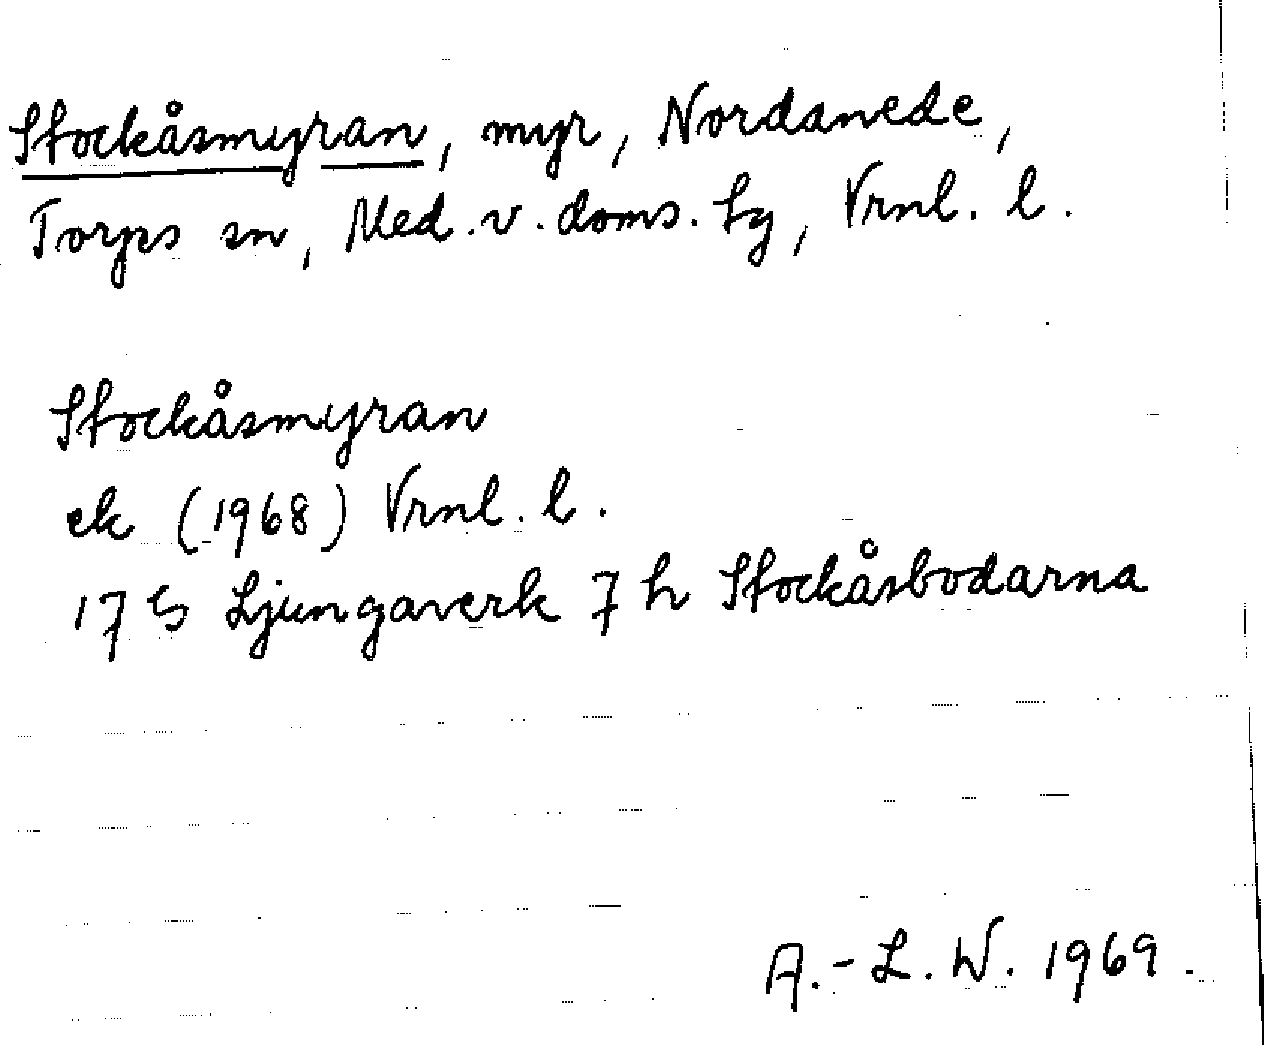 Stockåsmyran, myr, Nordanede,
Torps sn, Med. v. doms. tg, Vrnl. l.
Stockåsmyran
ek (1968) Vrnl. l.
17 G Ljungaverk 7 h Stockåsbodarna
A.-L. W. 1969.